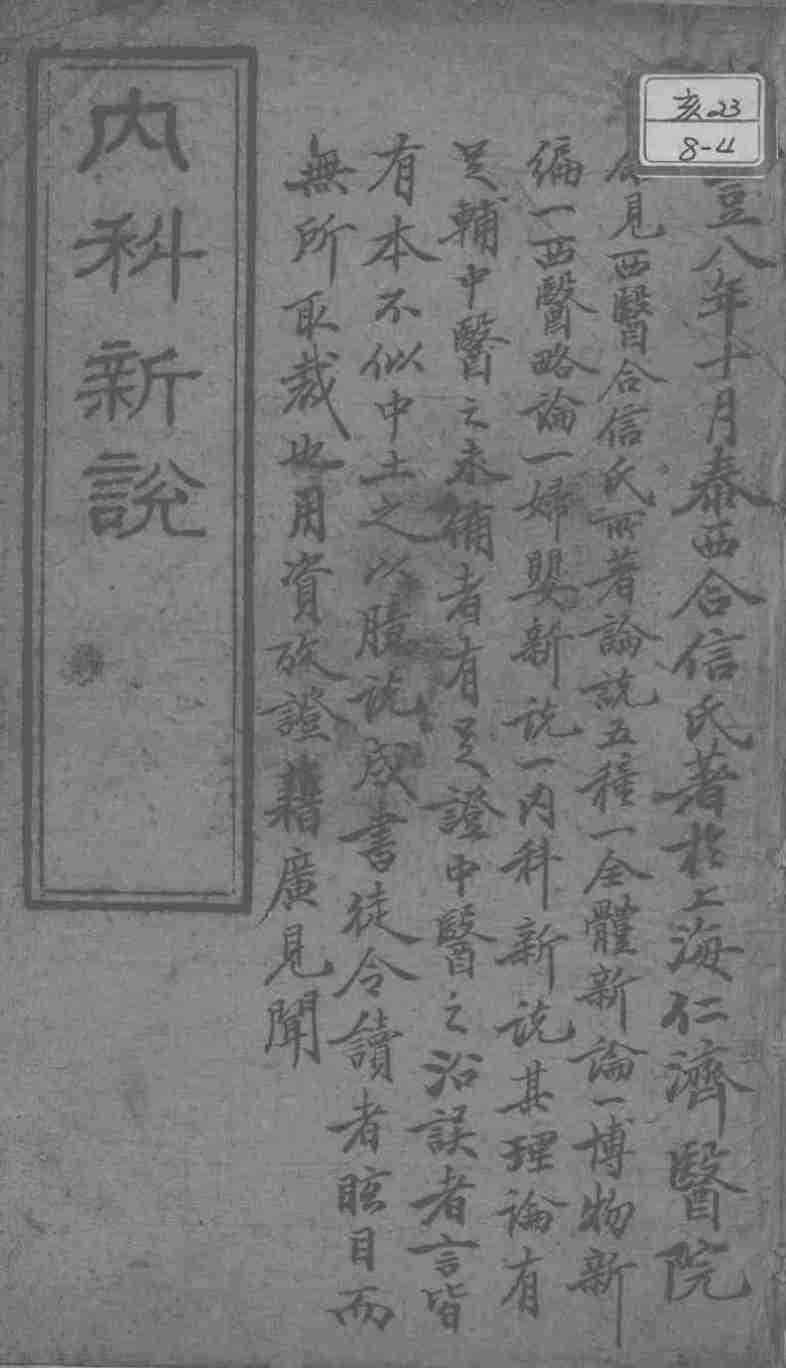 亥23
8-4
豐八年十月泰西合信氏著於上海仁濟醫院
見西醫合信氏所著論說五種一全體新論一博物新
編一西醫略論一婦嬰新說一內科新說其理論有
足輔中醫之未備者有足證中醫之沿誤者言皆
有本不似中土之以臆說成書徒令讀者眩目而
無所取裁也用資攷證藉廣見聞
內科新說